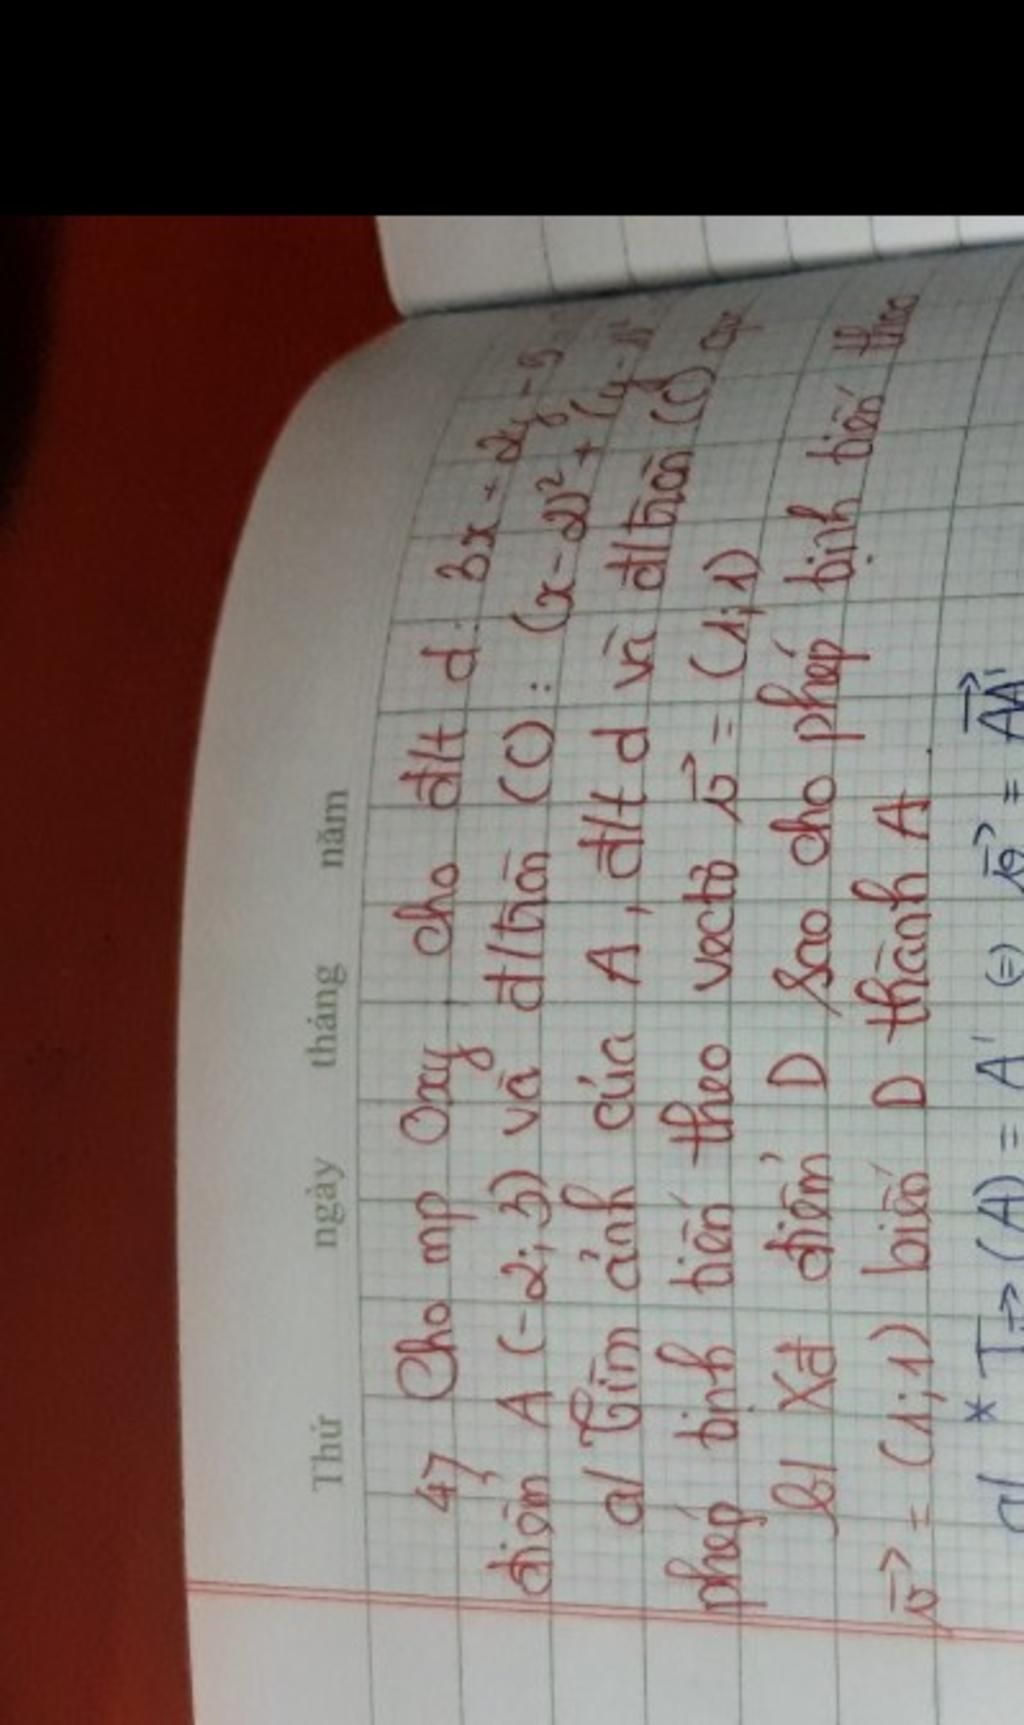 Thứ ngày tháng năm
4, Cho mp Oxy, cho đ/t d: 3x + 2y - 5
điểm A (-2; 3) và đ/tròn (C): (x-2)² + (y-1)²
a/ Tìm ảnh của A, đ/t d và đ/tròn (C) qua
phép tịnh tiến theo vectơ v⃗ = (1; 1)
b/ Xđ điểm D sao cho phép tịnh tiến theo
v⃗ = (1; 1) biến D thành A.
a/ * Tv⃗ (A) = A' (=) v⃗ = AA'⃗